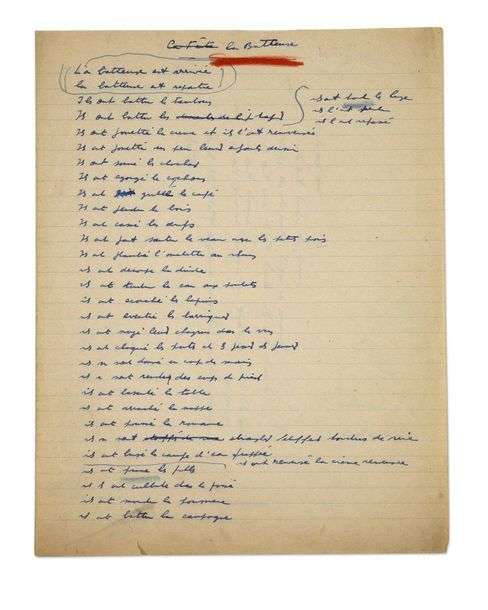 La Fête la Batteuse
La batteuse est arrivée
la batteuse est repartie
Ils ont battu le tambour
Ils ont battu les tapis
ils ont tordu le linge
ils l'ont pendu
ils l'ont repassé
Ils ont fouetté la crème et ils l'ont renversée
Ils ont fouetté un peu leurs enfants aussi
Ils ont sonné les cloches
Ils ont égorgé le cochon
Ils ont grillé le café
Ils ont fendu le bois
Ils ont cassé les œufs
Ils ont fait sauter le veau avec les petits pois
Ils ont flambé l'omelette au rhum
ils ont découpé la dinde
ils ont tordu le cou aux poulets
ils ont écorché les lapins
ils ont éventré les barriques
ils ont noyé leur chagrin dans le vin
ils ont claqué les portes et
ils se sont donné un coup de main
ils se sont rendu des coups de pied
ils ont basculé la table
ils ont arraché la nappe
ils ont poussé la romance
ils se sont étranglés étouffés tordus de rire
ils ont brisé la carafe d'eau frappée
ils ont renversé la crème renversée
ils ont pincé les filles
ils ont culbuté dans le fossé
ils ont mordu la poussière
ils ont battu la campagne